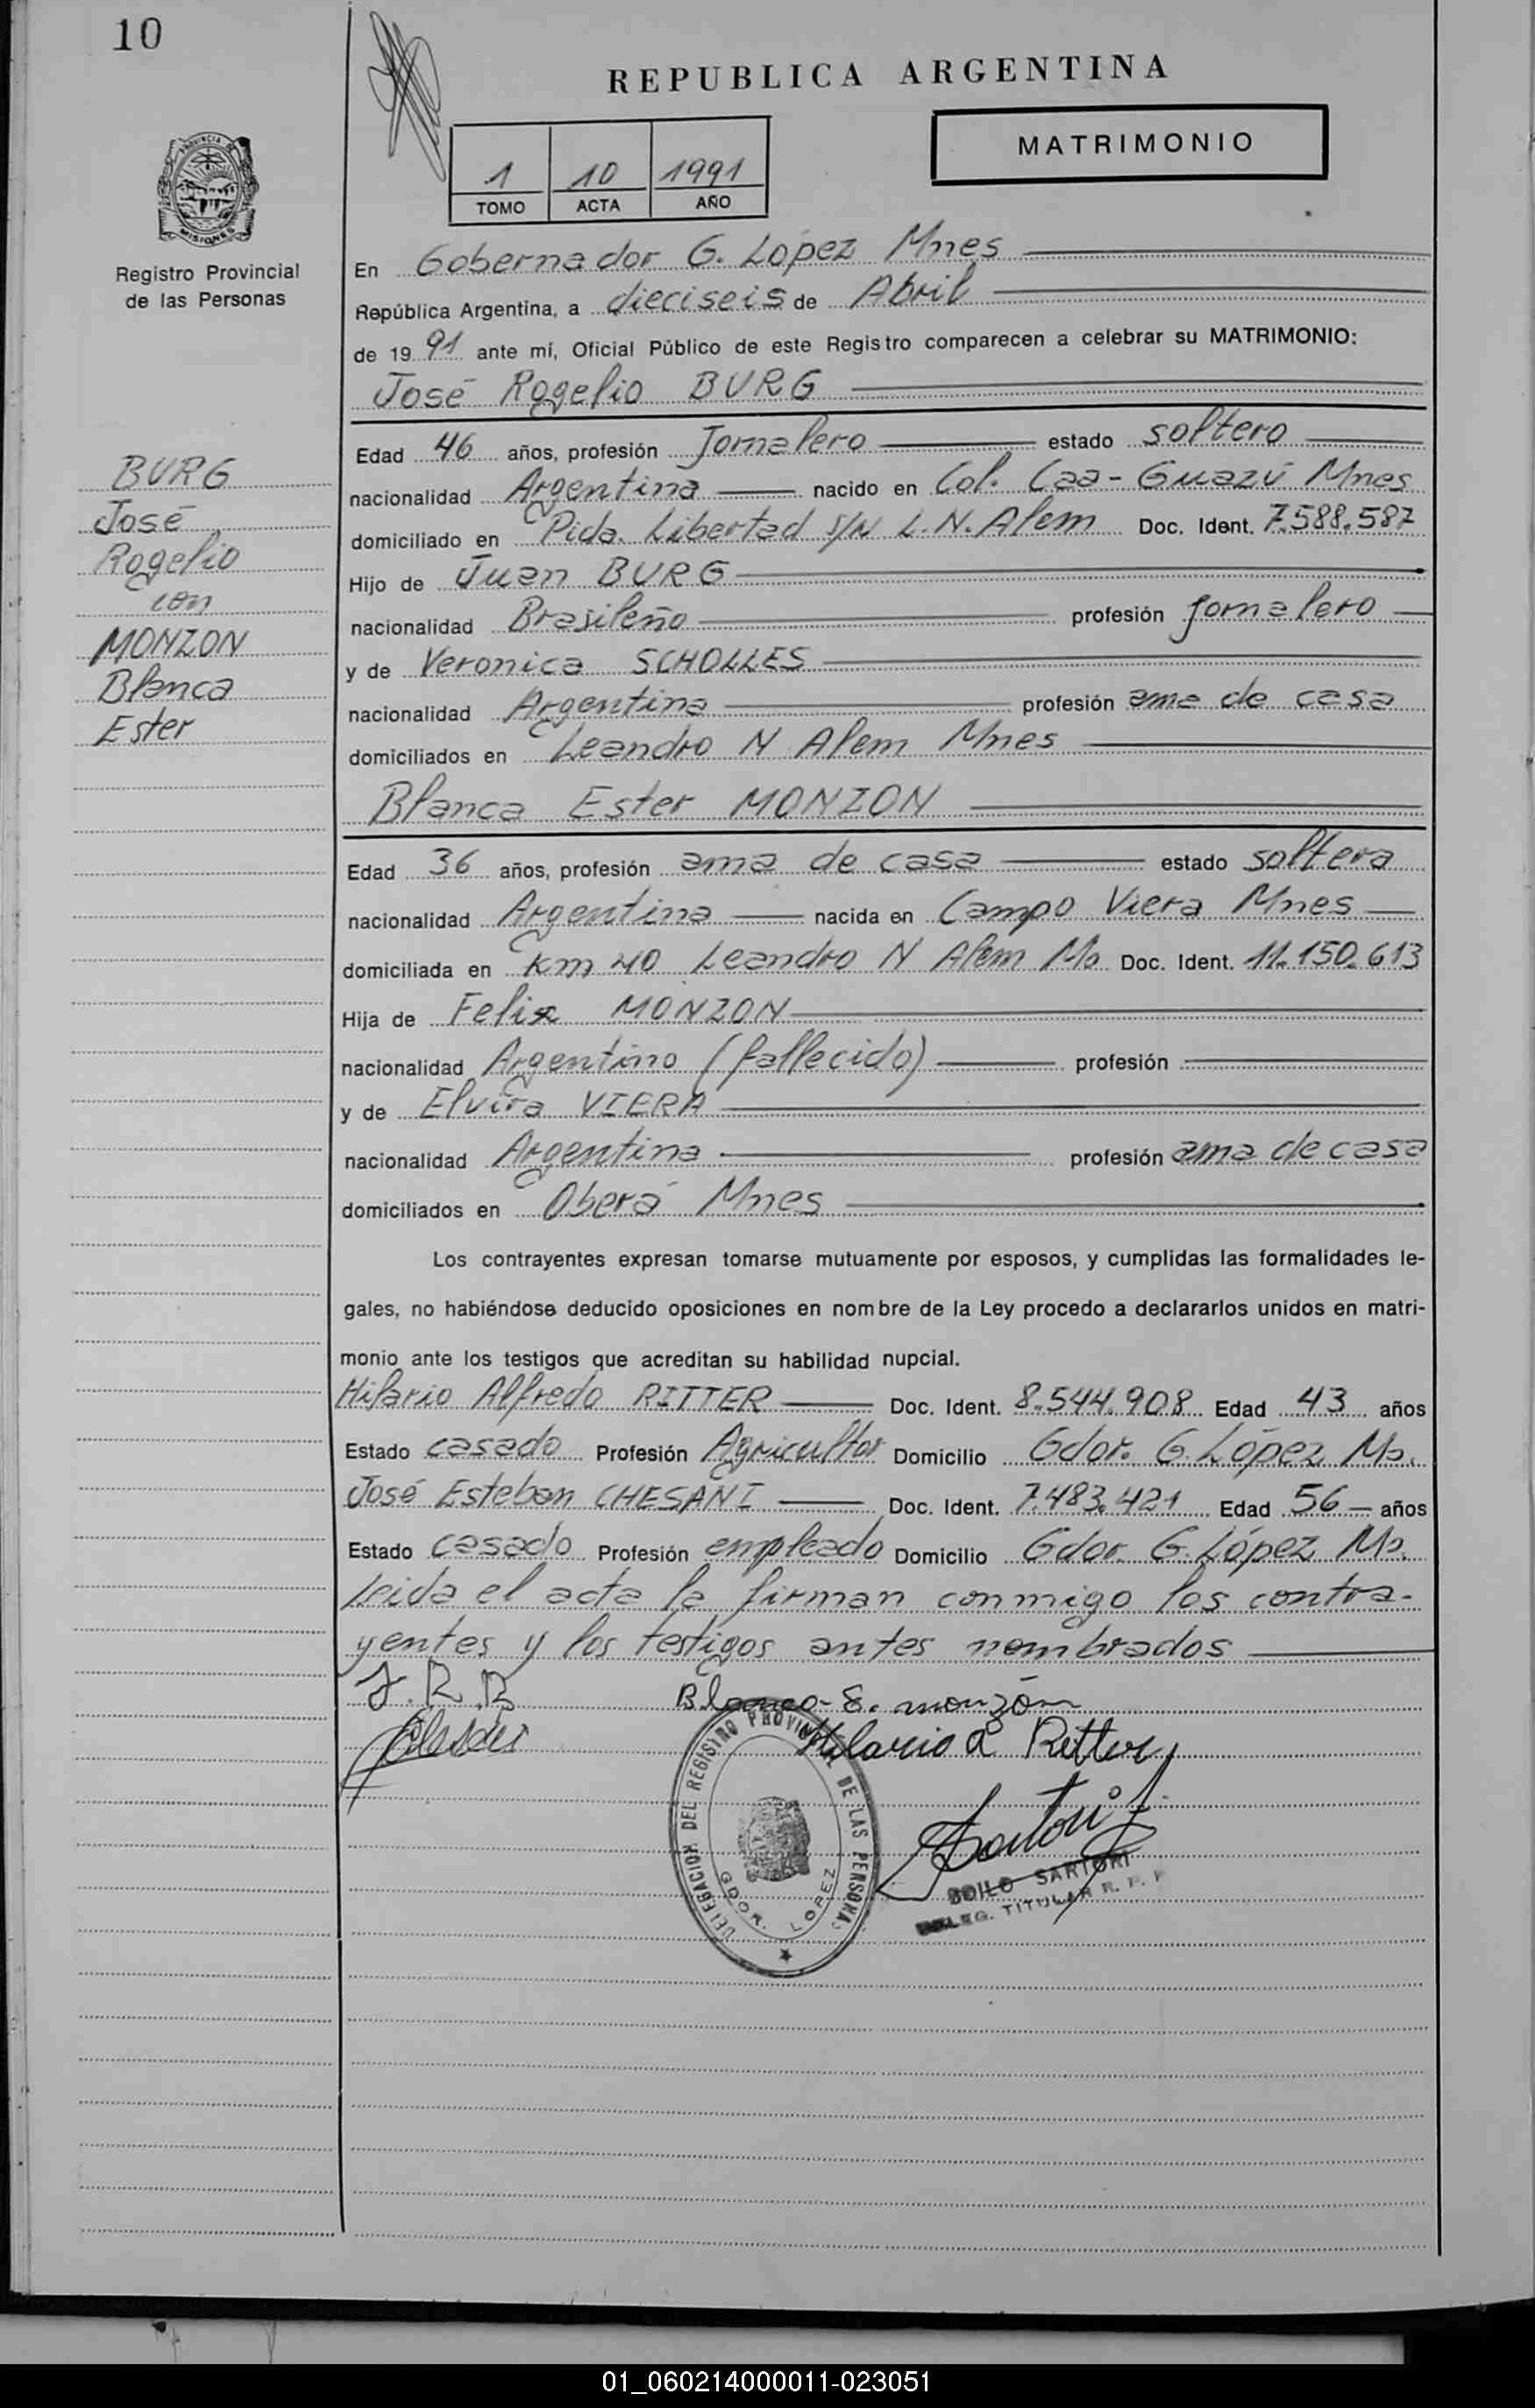 10
REPUBLICA ARGENTINA
MATRIMONIO
1 10 1991
TOMO ACTA AÑO
PROVINCIA DE
MISIONES
Registro Provincial
de las Personas
En Gobernador G. López Mnes
República Argentina, a dieciseis de Abril
de 19 91 ante mí, Oficial Público de este Registro comparecen a celebrar su MATRIMONIO:
José Rogelio BURG
Edad 46 años, profesión Jornalero estado soltero
nacionalidad Argentina nacido en Col. Caa-Guazú Mnes
domiciliado en Pida. Libertad s/N L.N. Alem Doc. Ident. 7.588.587
Hijo de Juan BURG
nacionalidad Brasileño profesión jornalero
y de Veronica SCHOLLES
nacionalidad Argentina profesión ama de casa
domiciliados en Leandro N Alem Mnes
BURG
José
Rogelio
con
MONZON
Blanca
Ester
Blanca Ester MONZON
Edad 36 años, profesión ama de casa estado soltera
nacionalidad Argentina nacida en Campo Viera Mnes
domiciliada en Km 40 Leandro N Alem Ms Doc. Ident. 11.150.613
Hija de Felix MONZON
nacionalidad Argentino (fallecido) profesión
y de Elvira VIERA
nacionalidad Argentina profesión ama de casa
domiciliados en Oberá Mnes
Los contrayentes expresan tomarse mutuamente por esposos, y cumplidas las formalidades le-
gales, no habiéndose deducido oposiciones en nombre de la Ley procedo a declararlos unidos en matri-
monio ante los testigos que acreditan su habilidad nupcial.
Hilario Alfredo RITTER Doc. Ident. 8.544.908 Edad 43 años
Estado casado Profesión Agricultor Domicilio Gdor. G. López Ms.
José Esteban CHESANI Doc. Ident. 7.483.421 Edad 56 años
Estado casado Profesión empleado Domicilio Gdor. G. López Ms.
leida el acta la firman conmigo los contra-
yentes y los testigos antes nombrados
J.R.B Blanca E. monzón
Hilario A Ritter
DELEGACION DEL REGISTRO PROVINCIAL DE LAS PERSONAS
GDOR. LOPEZ
SARTORI
DELEG. TITULAR R. P. P
01_060214000011-023051